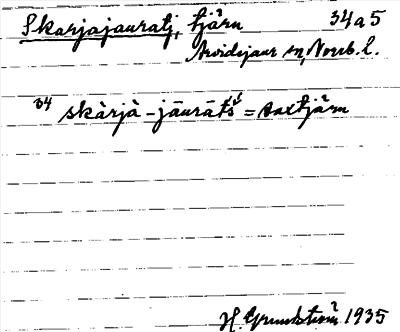 Skarjajauratj, tjärn 34a5
Arvidsjaur sn, Norrb. l.
34 skàrjà-jāurāt́š = saxtjärn
H. Grundström 1935